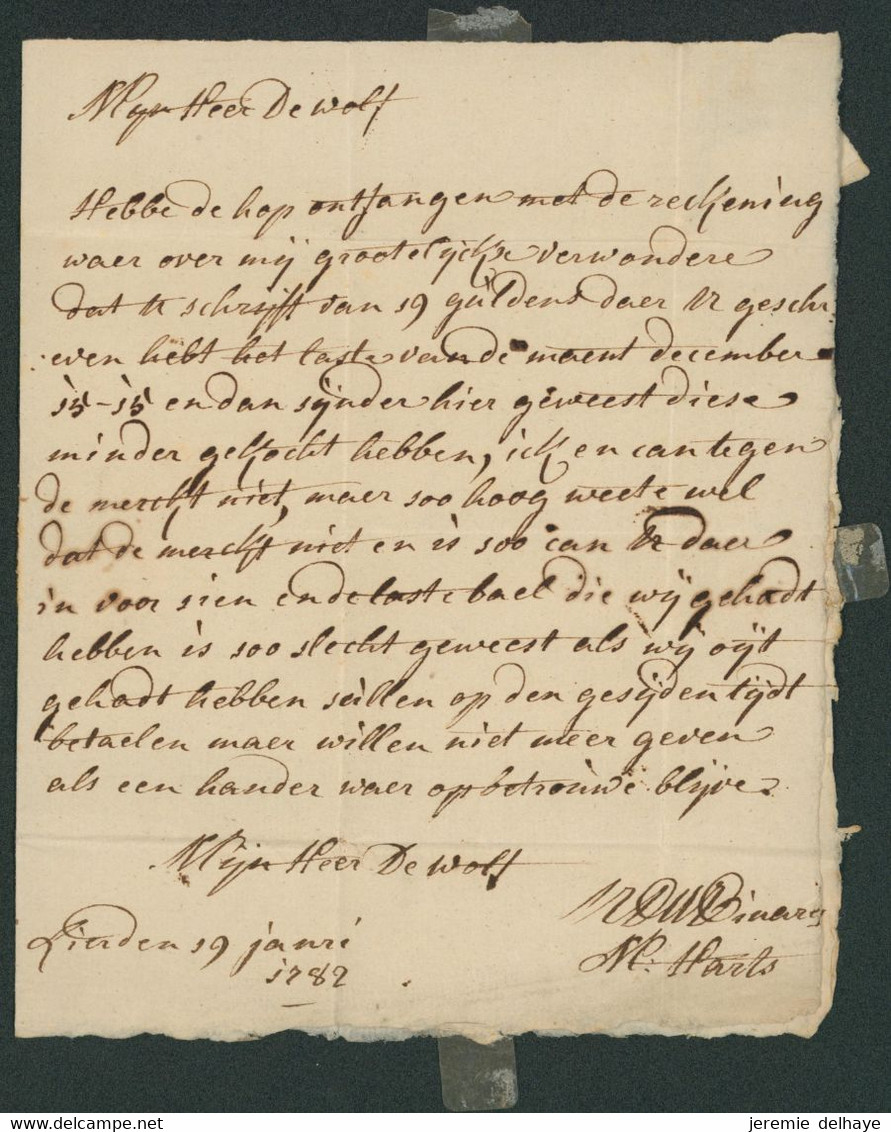 Mijn Heer De wolf
Hebbe de hop ontfangen met de reckening
waer over mij grootelijckx verwondere
dat U schrijft van 19 guldens daer U geschr
even hebt het laste van de maent december
15-15 en dan sijnder hier geweest die se
minder gekocht hebben, ick en can tegen
de merckt niet, maer soo hoog weete wel
dat de merckt niet en is soo can U daer
in voor sien ende laste bael die wij gehadt
hebben is soo slecht geweest als wij oijt
gehadt hebben sullen op den gesijden tijdt
betaelen maer willen niet meer geven
als een hander waer op betrouwe blijve
Mijn Heer De wolf
Lierden 19 janri
1782
M: Harts
jeremie delhaye